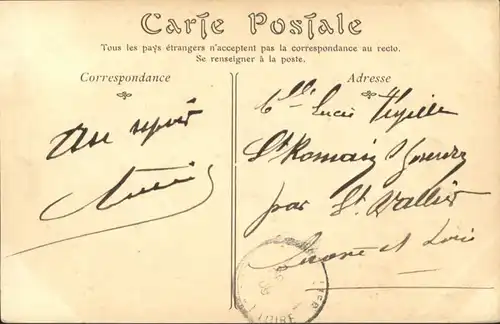 Carte Postale
Tous les pays étrangers n'acceptent pas la correspondance au recto.
Se renseigner à la poste.
Correspondance
Adresse
Au revoir
Lucie
St Romain
par St. Vallier
Saone et Loire
LOIRE